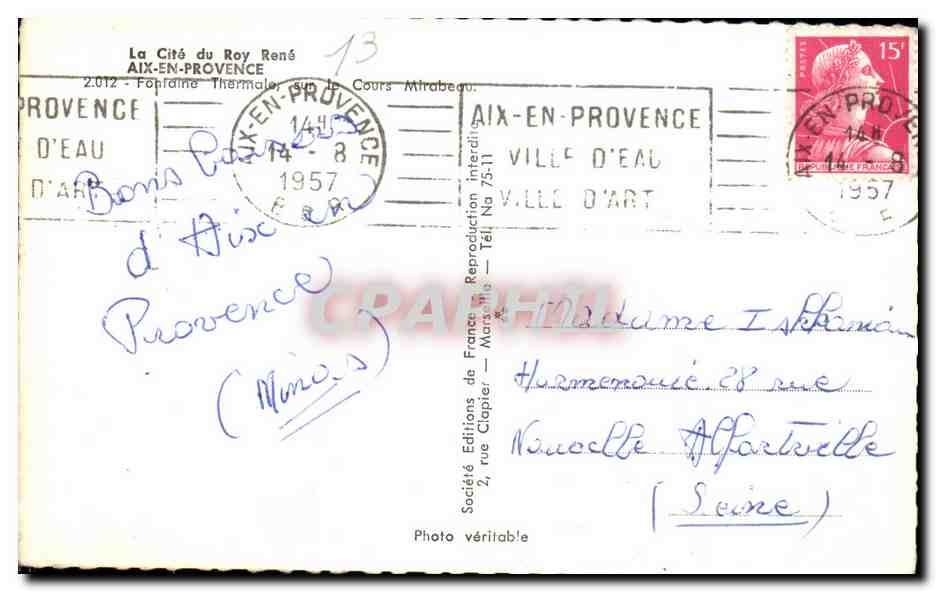 13
La Cité du Roy René
AIX-EN-PROVENCE
2.012 - Fontaine Thermale, sur le Cours Mirabeau.
PROVENCE
D'EAU
D'ART
AIX-EN-PROVENCE
14H
14 - 8
1957
AIX-EN-PROVENCE
VILLE D'EAU
VILLE D'ART
POSTES
15F
REPUBLIQUE FRANCAISE
AIX-EN-PROVEN
14H
14 - 8
1957
Bons baisers
d'Aix en
Provence
(Minas)
CPARHIL
Société Editions de France - Reproduction interdite
2, rue Clapier - Marseille - Tél. Na 75-11
Madame
Hurmenouie 28 rue
Nouvelle Alfortville
(Seine)
Photo véritable